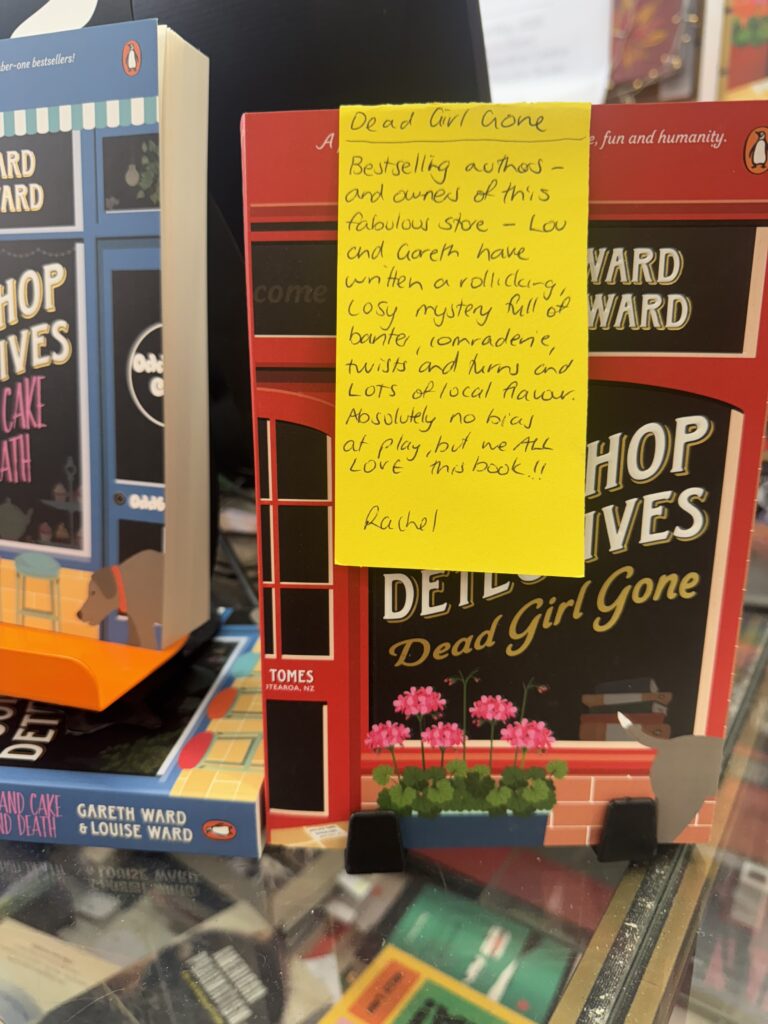 Dead Girl Gone
Bestselling authors –
and owners of this
fabulous store – Lou
and Gareth have
written a rollicking,
cosy mystery full of
banter, comraderie,
twists and turns and
LOTS of local flavour.
Absolutely no bias
at play, but we ALL
LOVE this book!!
Rachel
A
e, fun and humanity.
come
WARD
WARD
HOP
IVES
DETEC
Dead Girl Gone
TOMES
OTEAROA, NZ
ber-one bestsellers!
ARD
ARD
HOP
IVES
CAKE
ATH
DET
AND CAKE
ND DEATH
GARETH WARD
& LOUISE WARD